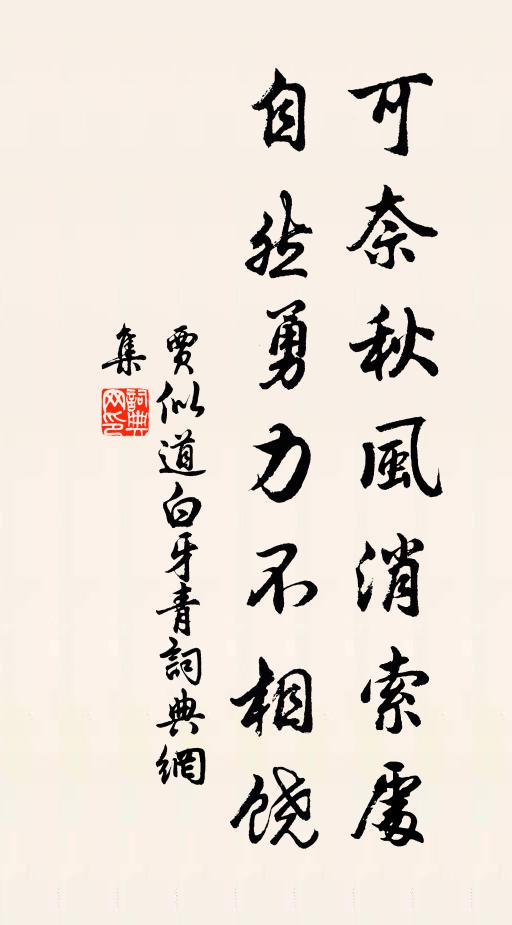 可奈秋風消索處
自然勇力不相饶
賈似道白牙青詞典網
集
詞典网印